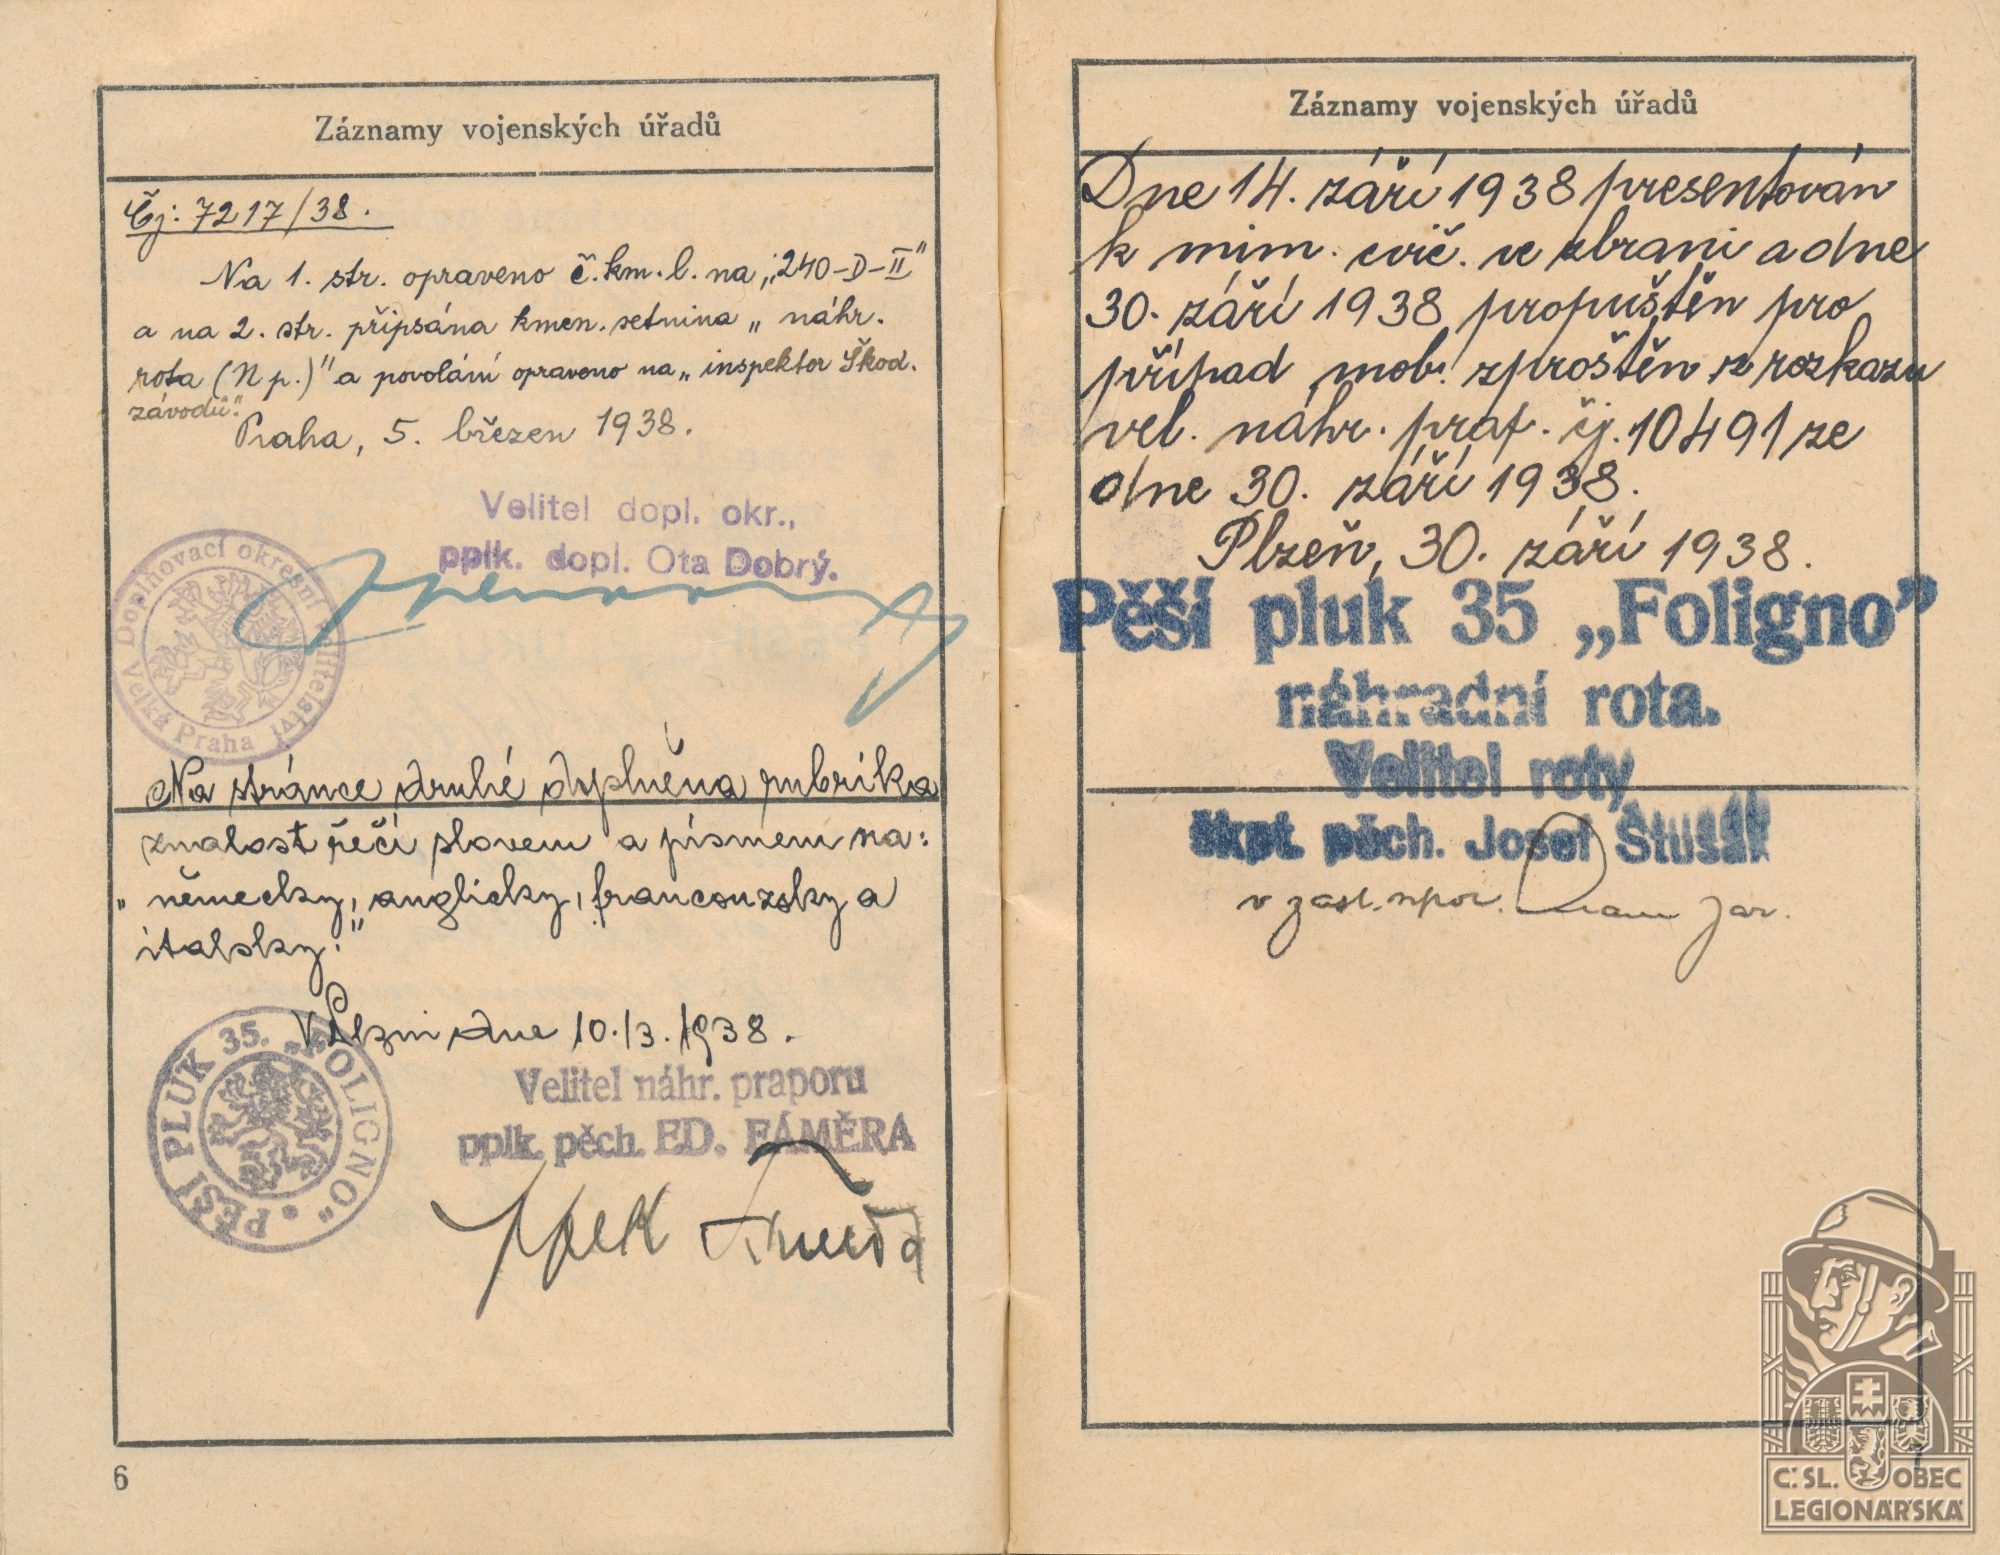 Záznamy vojenských úřadů
Čj: 7217/38.
Na 1. str. opraveno č. km. l. na „240-D-II"
a na 2. str. připsána kmen. setnina „náhr.
rota (Np.)" a povolání opraveno na „inspektor Škod.
závodů".
Praha, 5. březen 1938.
Velitel dopl. okr.,
pplk. dopl. Ota Dobrý.
Doplňovací okresní velitelství Velká Praha
Na stránce druhé doplněna rubrika
znalost řečí slovem a písmem na:
„německy, anglicky, francouzsky a
italsky."
V Plzni dne 10./3. 1938.
PĚŠÍ PLUK 35. „FOLIGNO"
Velitel náhr. praporu
pplk. pěch. ED. FÁMĚRA
pplk
6
Záznamy vojenských úřadů
Dne 14. září 1938 presentován
k mim. cvič. ve zbrani a dne
30. září 1938 propuštěn pro
případ mob. zproštěn z rozkazu
vel. náhr. prap. čj. 10491 ze
dne 30. září 1938.
Plzeň, 30. září 1938.
Pěší pluk 35 „Foligno"
náhradní rota.
Velitel roty
škpt. pěch. Josef Štusák
v zast. npor.
7
Č. SL. OBEC
LEGIONÁŘSKÁ